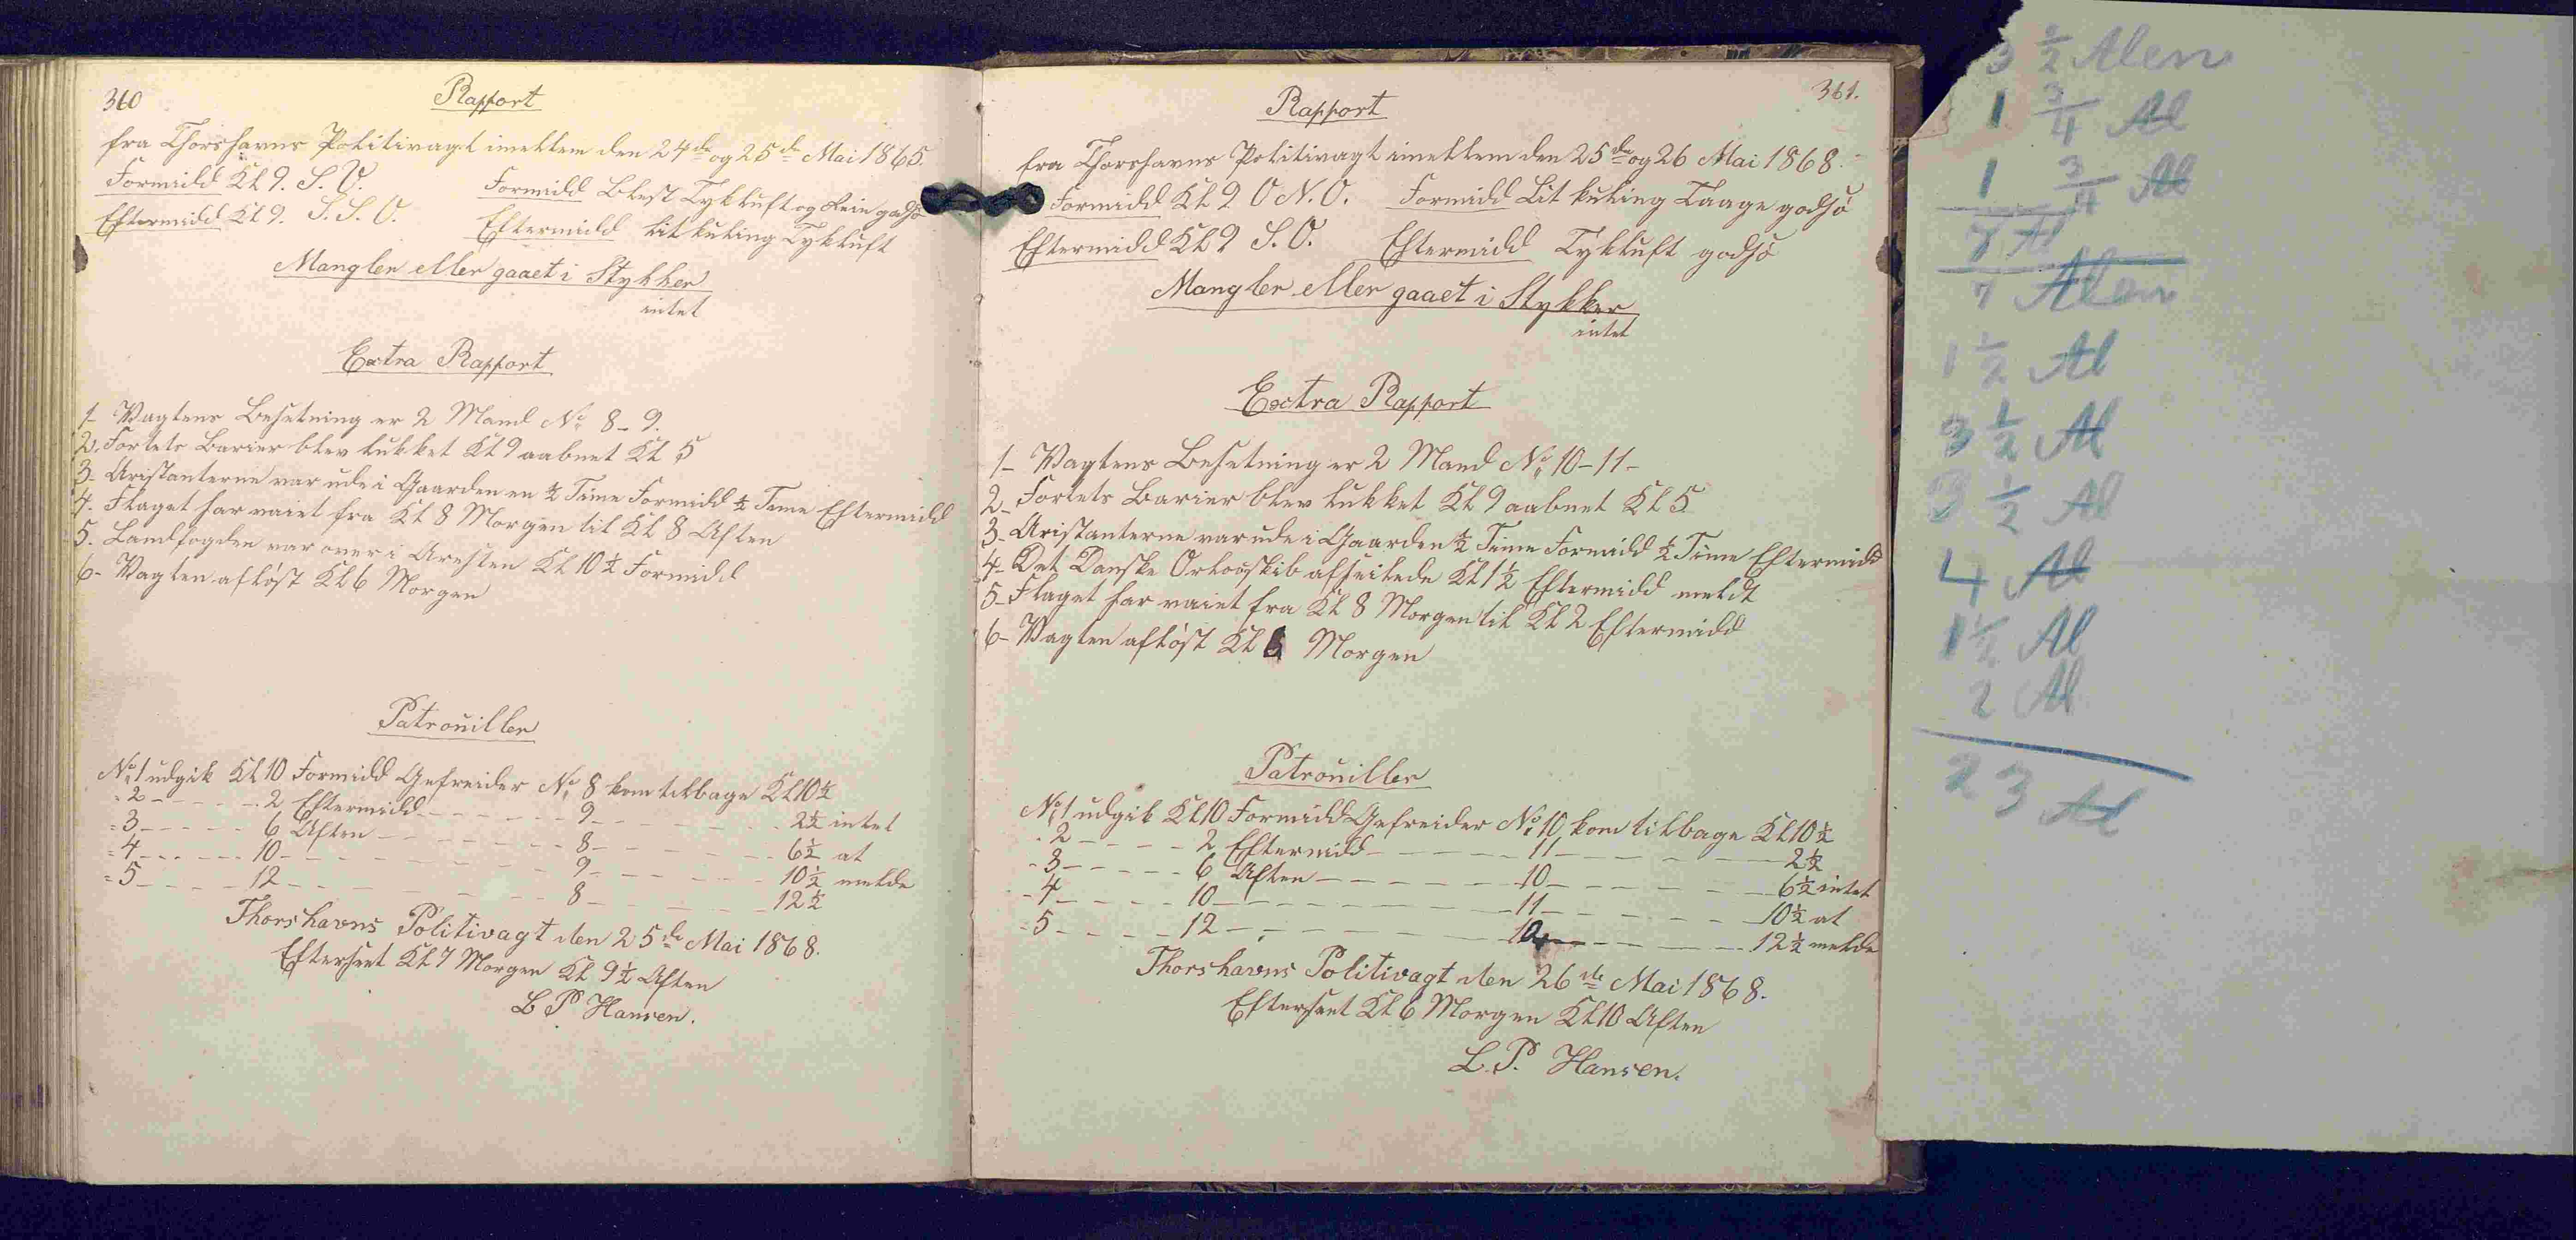 360
Rapport
fra Thorshavns Politivagt imellem den 24de og 25de Mai 1865.
Formidd Kl 9. S. V. Formidd Blest Tykluft og Rein godsö
Eftermidd Kl 9. S. S. O. Eftermidd lit kuling Tykluft
Mangler eller gaaet i Stykker
intet
Extra Rapport
1- Vagtens Besetning er 2 Mand No 8-9.
2. Fortets Barier blev lukket Kl 9 aabnet Kl 5
3- Aristanterne var ude i Gaarden en ½ Time Formidd ½ Time Eftermidd
4. Flaget har vaiet fra Kl 8 Morgen til Kl 8 Aften
5. Landfogden var over i Aresten Kl 10½ Formidd
6- Vagten aflöst Kl 6 Morgen
Patrouiller
No 1 udgik Kl 10 Formidd Gefreider No 8 kom tilbage Kl 10½
- 2 - - - - - 2 Eftermidd - - - - - 9 - - - - - 2½ intet
- 3 - - - - - 6 Aften - - - - - 8 - - - - - 6½ at
- 4 - - - - - 10 - - - - - 9 - - - - - 10½ melde
- 5 - - - - - 12 - - - - - 8 - - - - - 12½
Thorshavns Politivagt den 25de Mai 1868.
Efterseet Kl 7 Morgen Kl 9½ Aften
L P Hansen.
361.
Rapport
fra Thorshavns Politivagt imellem den 25de og 26 Mai 1868.
Formidd Kl 9 O N. O. Formidd Lit kuling Taage godsö
Eftermidd Kl 9 S. O. Eftermidd Tykluft godsö
Mangler eller gaaet i Stykker
intet
Extra Rapport
1- Vagtens Besetning er 2 Mand No 10-11-
2- Fortets Barier blev lukket Kl 9 aabnet Kl 5
3- Aristanterne var ude i Gaarden ½ Time Formidd ½ Time Eftermidd
4- Det Danske Orlovskib afseilede Kl 1½ Eftermidd meldt
5- Flaget har vaiet fra Kl 8 Morgen til Kl 2 Eftermidd
6- Vagten aflöst Kl 6 Morgen
Patrouiller
No 1 udgik Kl 10 Formidd Gefreider No 10 kom tilbage Kl 10½
- 2 - - - - - 2 Eftermidd - - - - - 11 - - - - - 2½
- 3 - - - - - 6 Aften - - - - - 10 - - - - - 6½ intet
- 4 - - - - - 10 - - - - - 11 - - - - - 10½ at
- 5 - - - - - 12 - - - - - 10 - - - - - 12½ melde
Thorshavns Politivagt den 26de Mai 1868.
Efterseet Kl 6 Morgen Kl 10 Aften
L. P. Hansen.
3 ½ Alen
1 ¾ Al
1 ¾ Al
7 Al
7 Alen
1 ½ Al
3 ½ Al
3 ½ Al
4 Al
1 ½ Al
2 Al
23 Al